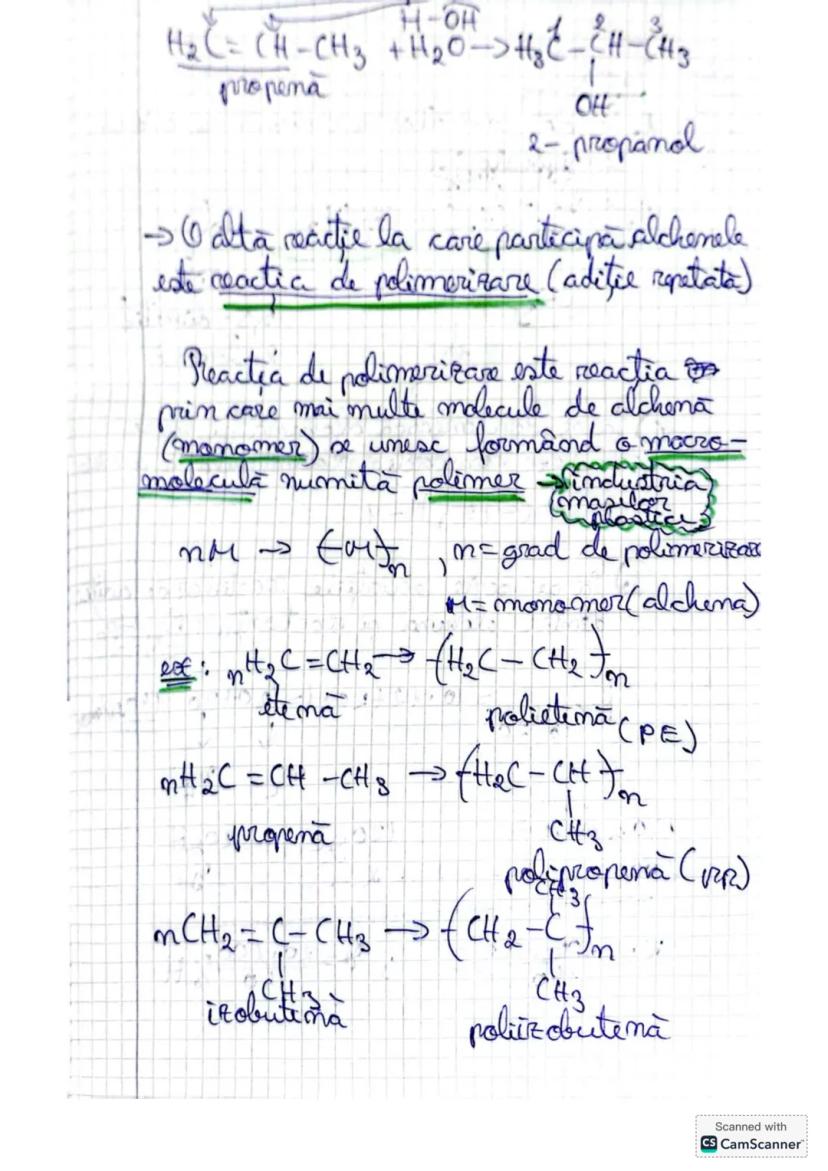 H-OH
H₂C=CH-CH₃ +H₂O→H₃C-CH-CH₃
1 2 3
propenă
OH
2-propanol
→ O altă reacție la care participă alchenele
este reactia de polimerizare (adiție repetată)
Reacția de polimerizare este reactia
prin care mai multe molecule de alchenă
(monomer) se unesc formând o macro-
moleculă numită polimer → industria
maselor
plastice
nM → (M)n , n=grad de polimerizare
M=monomer(alchena)
ex: nH₂C=CH₂→ (H₂C-CH₂)n
etenă
polietenă (PE)
nH₂C=CH-CH₃ → (H₂C-CH)n
CH₃
propenă
polipropenă (PP)
CH₃
nCH₂=C-CH₃ → (CH₂-C)n
CH₃
CH₃
izobutenă
poliizobutenă
Scanned with
CS CamScanner